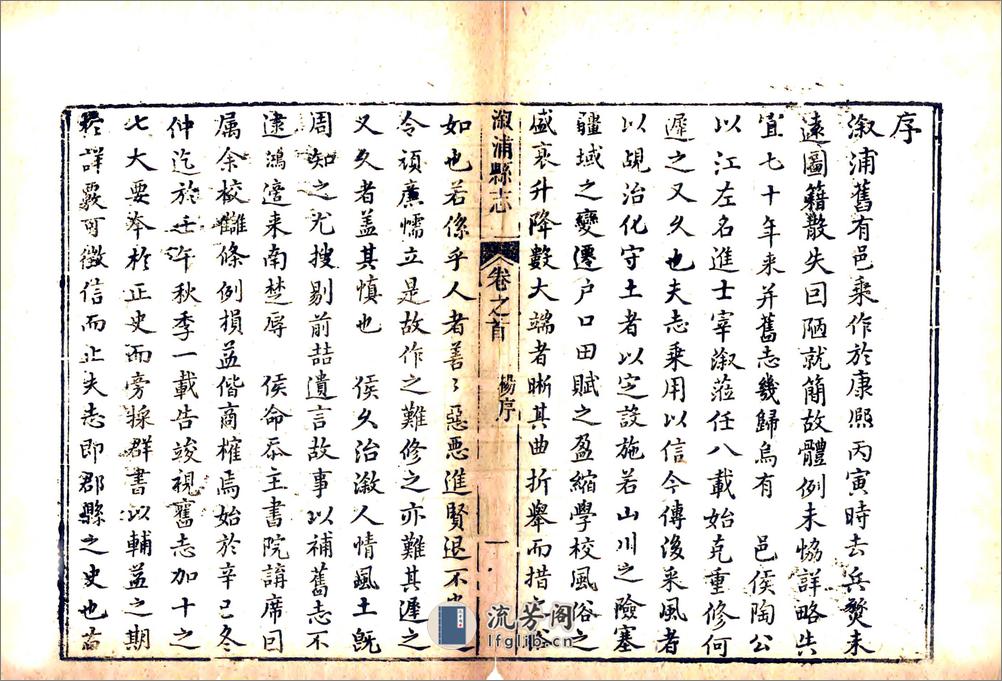 序
溆浦舊有邑乘作於康熙丙寅時去兵燹未
遠圖籍散失因陋就簡故體例未恊詳畧失
宜七十年来并舊志幾歸烏有　邑侯陶公
以江左名進士宰溆蒞任八載始克重修何
遲之又久也夫志乘用以信今傳後采風者
以覘治化守土者以定設施若山川之險塞
疆域之變遷户口田賦之盈縮學校風俗之
盛衰升降數大端者晰其曲折舉而措
溆浦縣志
卷之首
楊序
一
如也若係乎人者善々惡惡進賢退不
令頑廉懦立是故作之難修之亦難其遲之
又久者盖其慎也　侯久治溆人情風土旣
周知之尤搜剔前喆遺言故事以補舊志不
逮鴻適来南楚辱　侯命忝主書院講席因
属余校讎條例損益偕商榷焉始於辛巳冬
仲迄於壬午秋季一載告竣視舊志加十之
七大要本於正史而旁採群書以輔益之期
於詳覈可徵信而止夫志即郡縣之史也
流芳阁
lfglib.cn